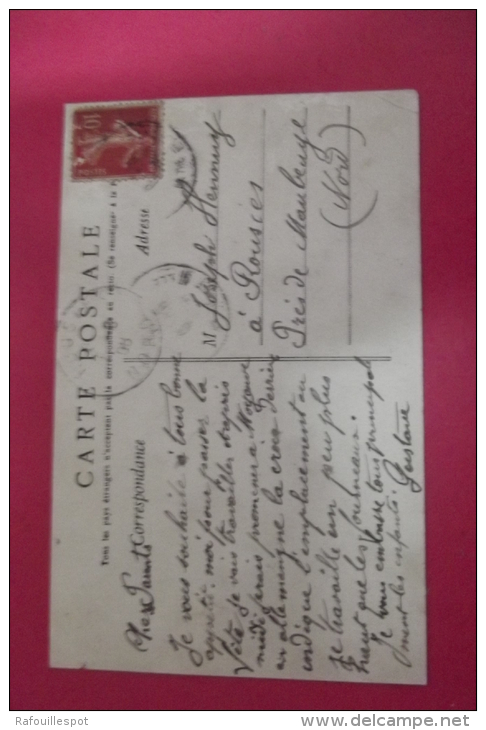 CARTE POSTALE
Tous les pays étrangers n'acceptent pas la correspondance au recto. (Se renseigner à la
Correspondance
Adresse
Chers Parents
Je vous souhaite à tous bonne
appétit. moi pour passer la
je vais travailler et après
midi j'irais promener a
en allemangne la croix derrière
indique l'emplacement ou
je travaille un peu plus
haut que les
Je vous embrasse tous principal
ment les enfants.
M Joseph
à Rousies
Près de Maubeuge
(Nord)
10
Rafouillespot